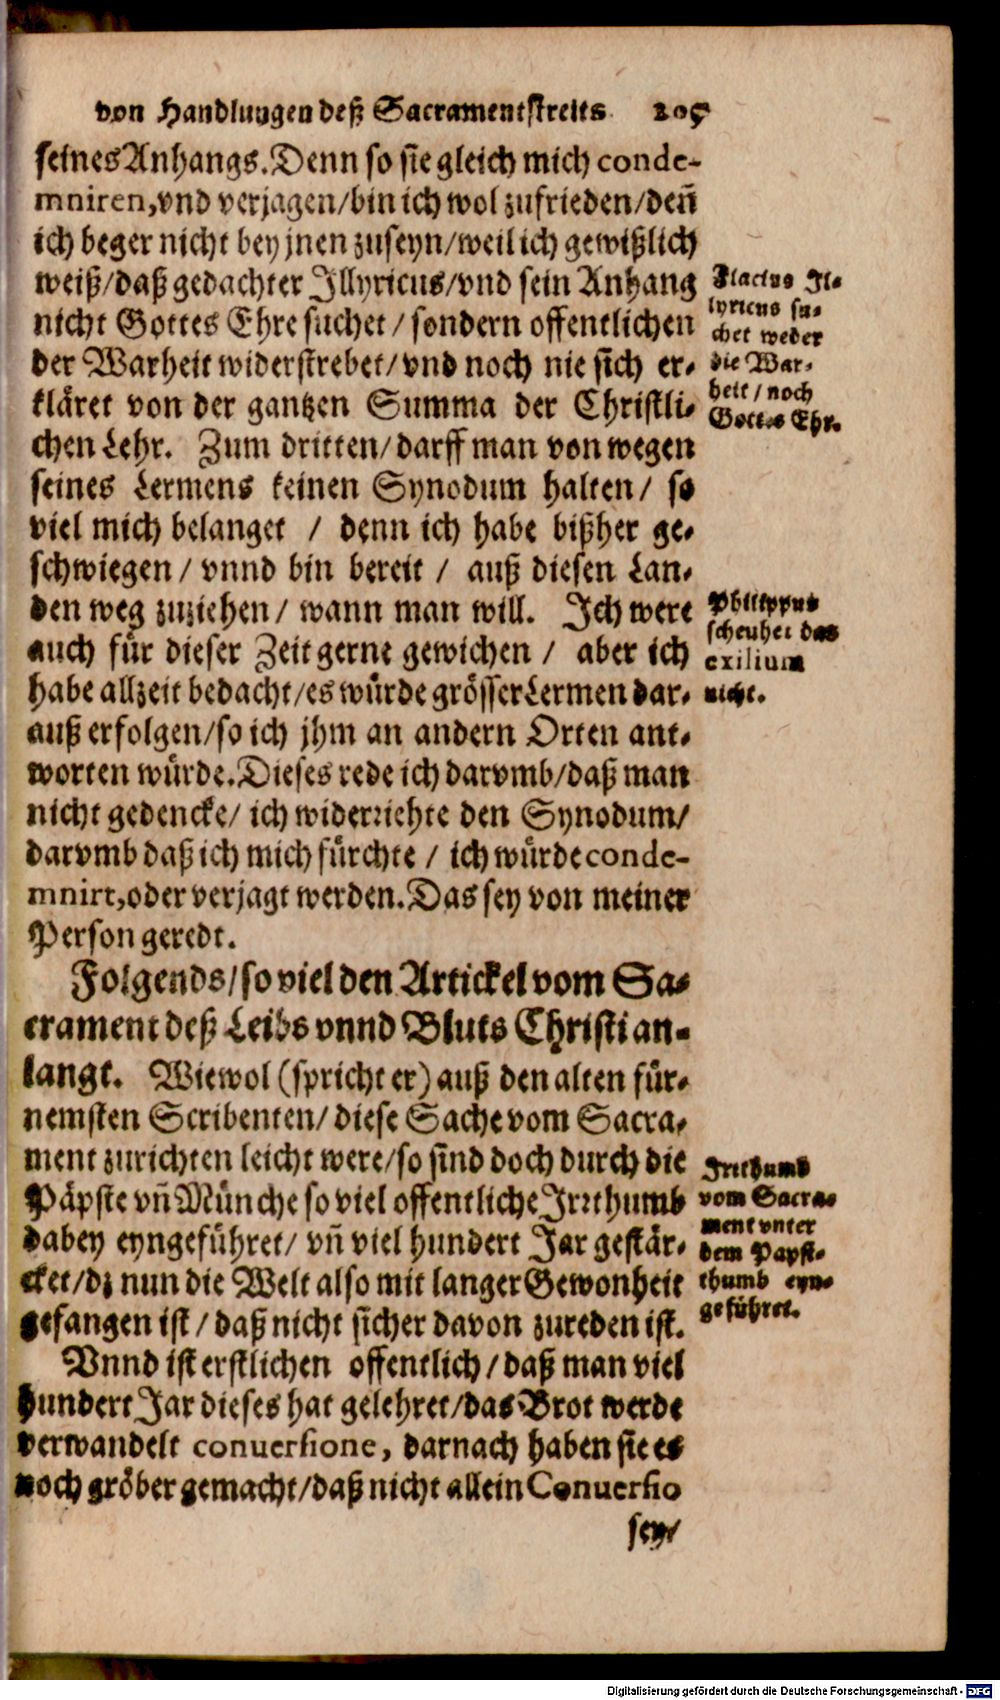 von Handlungen deß Sacramentstreits. 205
seines Anhangs. Denn so sie gleich mich conde-
mniren, vnd verjagen/ bin ich wol zufrieden/ deñ
ich beger nicht bey jnen zuseyn/ weil ich gewißlich
weiß/ daß gedachter Illyricus/ vnd sein Anhang
nicht Gottes Ehre suchet/ sondern offentlichen
der Warheit widerstrebet/ vnd noch nie sich er-
kläret von der gantzen Summa der Christli-
chen Lehr. Zum dritten/ darff man von wegen
seines Lermens keinen Synodum halten/ so
viel mich belanget / denn ich habe bißher ge-
schwiegen/ vnnd bin bereit / auß diesen Lan-
den weg zuziehen/ wann man will. Ich were
auch für dieser Zeit gerne gewichen / aber ich
habe allzeit bedacht/ es würde grösser Lermen dar-
auß erfolgen/ so ich jhm an andern Orten ant-
worten würde. Dieses rede ich darvmb/ daß man
nicht gedencke/ ich widerriehte den Synodum/
darvmb daß ich mich fürchte / ich würde conde-
mnirt, oder verjagt werden. Das sey von meiner
Person geredt.
Folgends/ so viel den Artickel vom Sa-
crament deß Leibs vnnd Bluts Christi an-
langt. Wiewol (spricht er) auß den alten für-
nemsten Scribenten/ diese Sache vom Sacra-
ment zurichten leicht were/ so sind doch durch die
Päpste vñ Münche so viel offentliche Irrthumb
dabey eyngeführet/ vñ viel hundert Jar gestär-
cket/ dz nun die Welt also mit langer Gewonheit
gefangen ist/ daß nicht sicher davon zureden ist.
Vnnd ist erstlichen offentlich/ daß man viel
hundert Jar dieses hat gelehret/ das Brot werde
verwandelt conuersione, darnach haben sie es
noch gröber gemacht/ daß nicht allein Conuersio
sey/
Flacius Il-
lyricus su-
chet weder
die War-
heit / noch
Gottes Ehr.
Philippus
scheuhet das
exilium
nicht.
Irrthumb
vom Sacra-
ment vnter
dem Papst-
thumb eyn-
geführet.
Digitalisierung gefördert durch die Deutsche Forschungsgemeinschaft - DFG